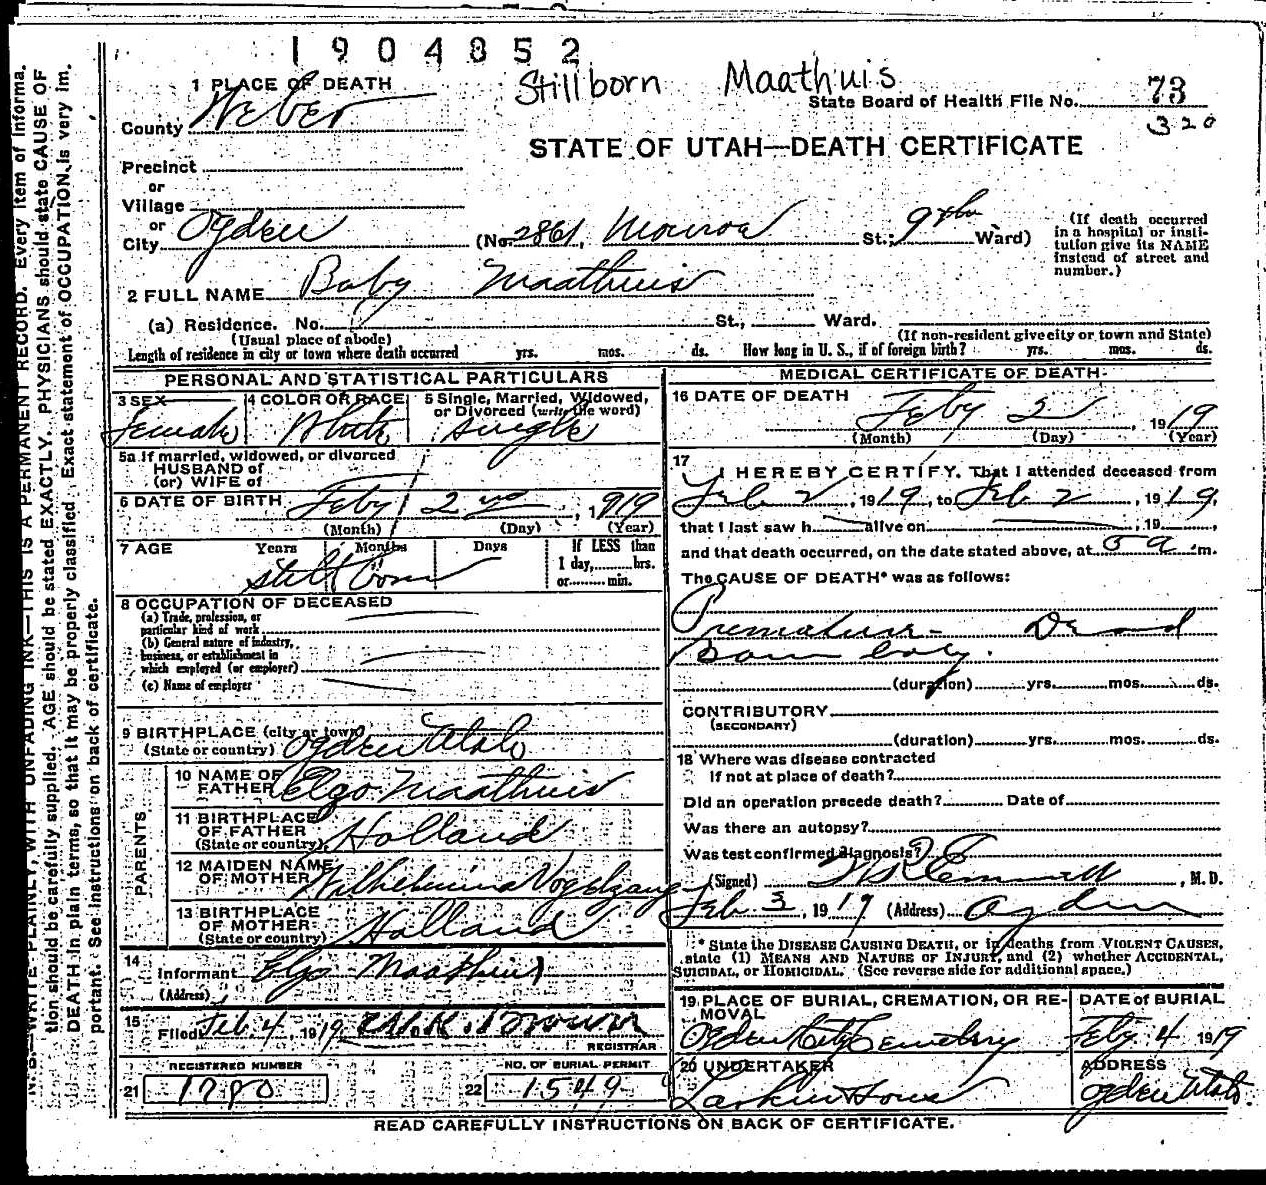 1904852
Stillborn Maathuis
1 PLACE OF DEATH
State Board of Health File No. 73
County Weber
320
STATE OF UTAH—DEATH CERTIFICATE
Precinct
or
Village
or
City Ogden (No. 2861, Monroe St.; 9th Ward)
(If death occurred in a hospital or institution give its NAME instead of street and number.)
2 FULL NAME Baby Maathuis
(a) Residence. No. St., Ward.
(Usual place of abode) (If non-resident give city or town and State)
Length of residence in city or town where death occurred yrs. mos. ds. How long in U. S., if of foreign birth? yrs. mos. ds.
PERSONAL AND STATISTICAL PARTICULARS
3 SEX Female
4 COLOR OR RACE White
5 Single, Married, Widowed, or Divorced (write the word) single
5a If married, widowed, or divorced
HUSBAND of
(or) WIFE of
6 DATE OF BIRTH Feby 2nd, 1919
(Month) (Day) (Year)
7 AGE Years Months Days If LESS than
1 day, hrs.
or min.
stillborn
8 OCCUPATION OF DECEASED
(a) Trade, profession, or
particular kind of work
(b) General nature of industry,
business, or establishment in
which employed (or employer)
(c) Name of employer
9 BIRTHPLACE (city or town)
(State or country) Ogden Utah
PARENTS
10 NAME OF
FATHER Elzo Maathuis
11 BIRTHPLACE
OF FATHER
(State or country) Holland
12 MAIDEN NAME
OF MOTHER Wilhelmina Vogelzang
13 BIRTHPLACE
OF MOTHER
(State or country) Holland
14
Informant Elzo Maathuis
(Address)
15
Filed Feb 4, 1919
REGISTRAR
REGISTERED NUMBER
21 1780
NO. OF BURIAL PERMIT
22 1549
MEDICAL CERTIFICATE OF DEATH
16 DATE OF DEATH Feby 2, 1919
(Month) (Day) (Year)
17
I HEREBY CERTIFY. That I attended deceased from
Feb 2, 1919, to Feb 2, 1919,
that I last saw h alive on , 19 ,
and that death occurred, on the date stated above, at 5 a .m.
The CAUSE OF DEATH* was as follows:
Premature - Dead
Born baby.
(duration) yrs. mos. ds.
CONTRIBUTORY
(SECONDARY)
(duration) yrs. mos. ds.
18 Where was disease contracted
If not at place of death?
Did an operation precede death? Date of
Was there an autopsy?
Was test confirmed diagnosis?
(Signed) , M.D.
Feb 3, 1919 (Address) Ogden
* State the DISEASE CAUSING DEATH, or in deaths from VIOLENT CAUSES,
state (1) MEANS AND NATURE OF INJURY, and (2) whether ACCIDENTAL,
SUICIDAL, or HOMICIDAL. (See reverse side for additional space.)
19 PLACE OF BURIAL, CREMATION, OR REMOVAL
Ogden City Cemetery
DATE of BURIAL
Feby. 4 1919
20 UNDERTAKER
Larkin
ADDRESS
Ogden Utah.
READ CAREFULLY INSTRUCTIONS ON BACK OF CERTIFICATE.
N. B.—WRITE PLAINLY, WITH UNFADING INK—THIS IS A PERMANENT RECORD. Every item of informa-
tion should be carefully supplied. AGE should be stated EXACTLY. PHYSICIANS should state CAUSE OF
DEATH in plain terms, so that it may be properly classified. Exact statement of OCCUPATION is very im-
portant. See instructions on back of certificate.